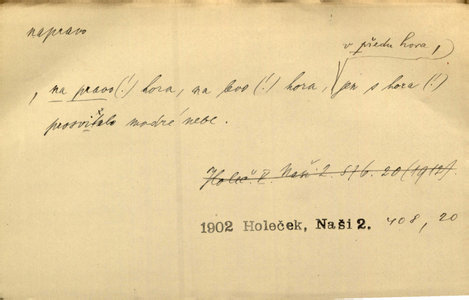 napravo
v předu hora,
, na pravo (!) hora, na levo (!) hora, jen s hora (!)
prosvítalo modré nebe.
Holeč. Naši 2. 20 (1912).
1902 Holeček, Naši 2. 408, 20